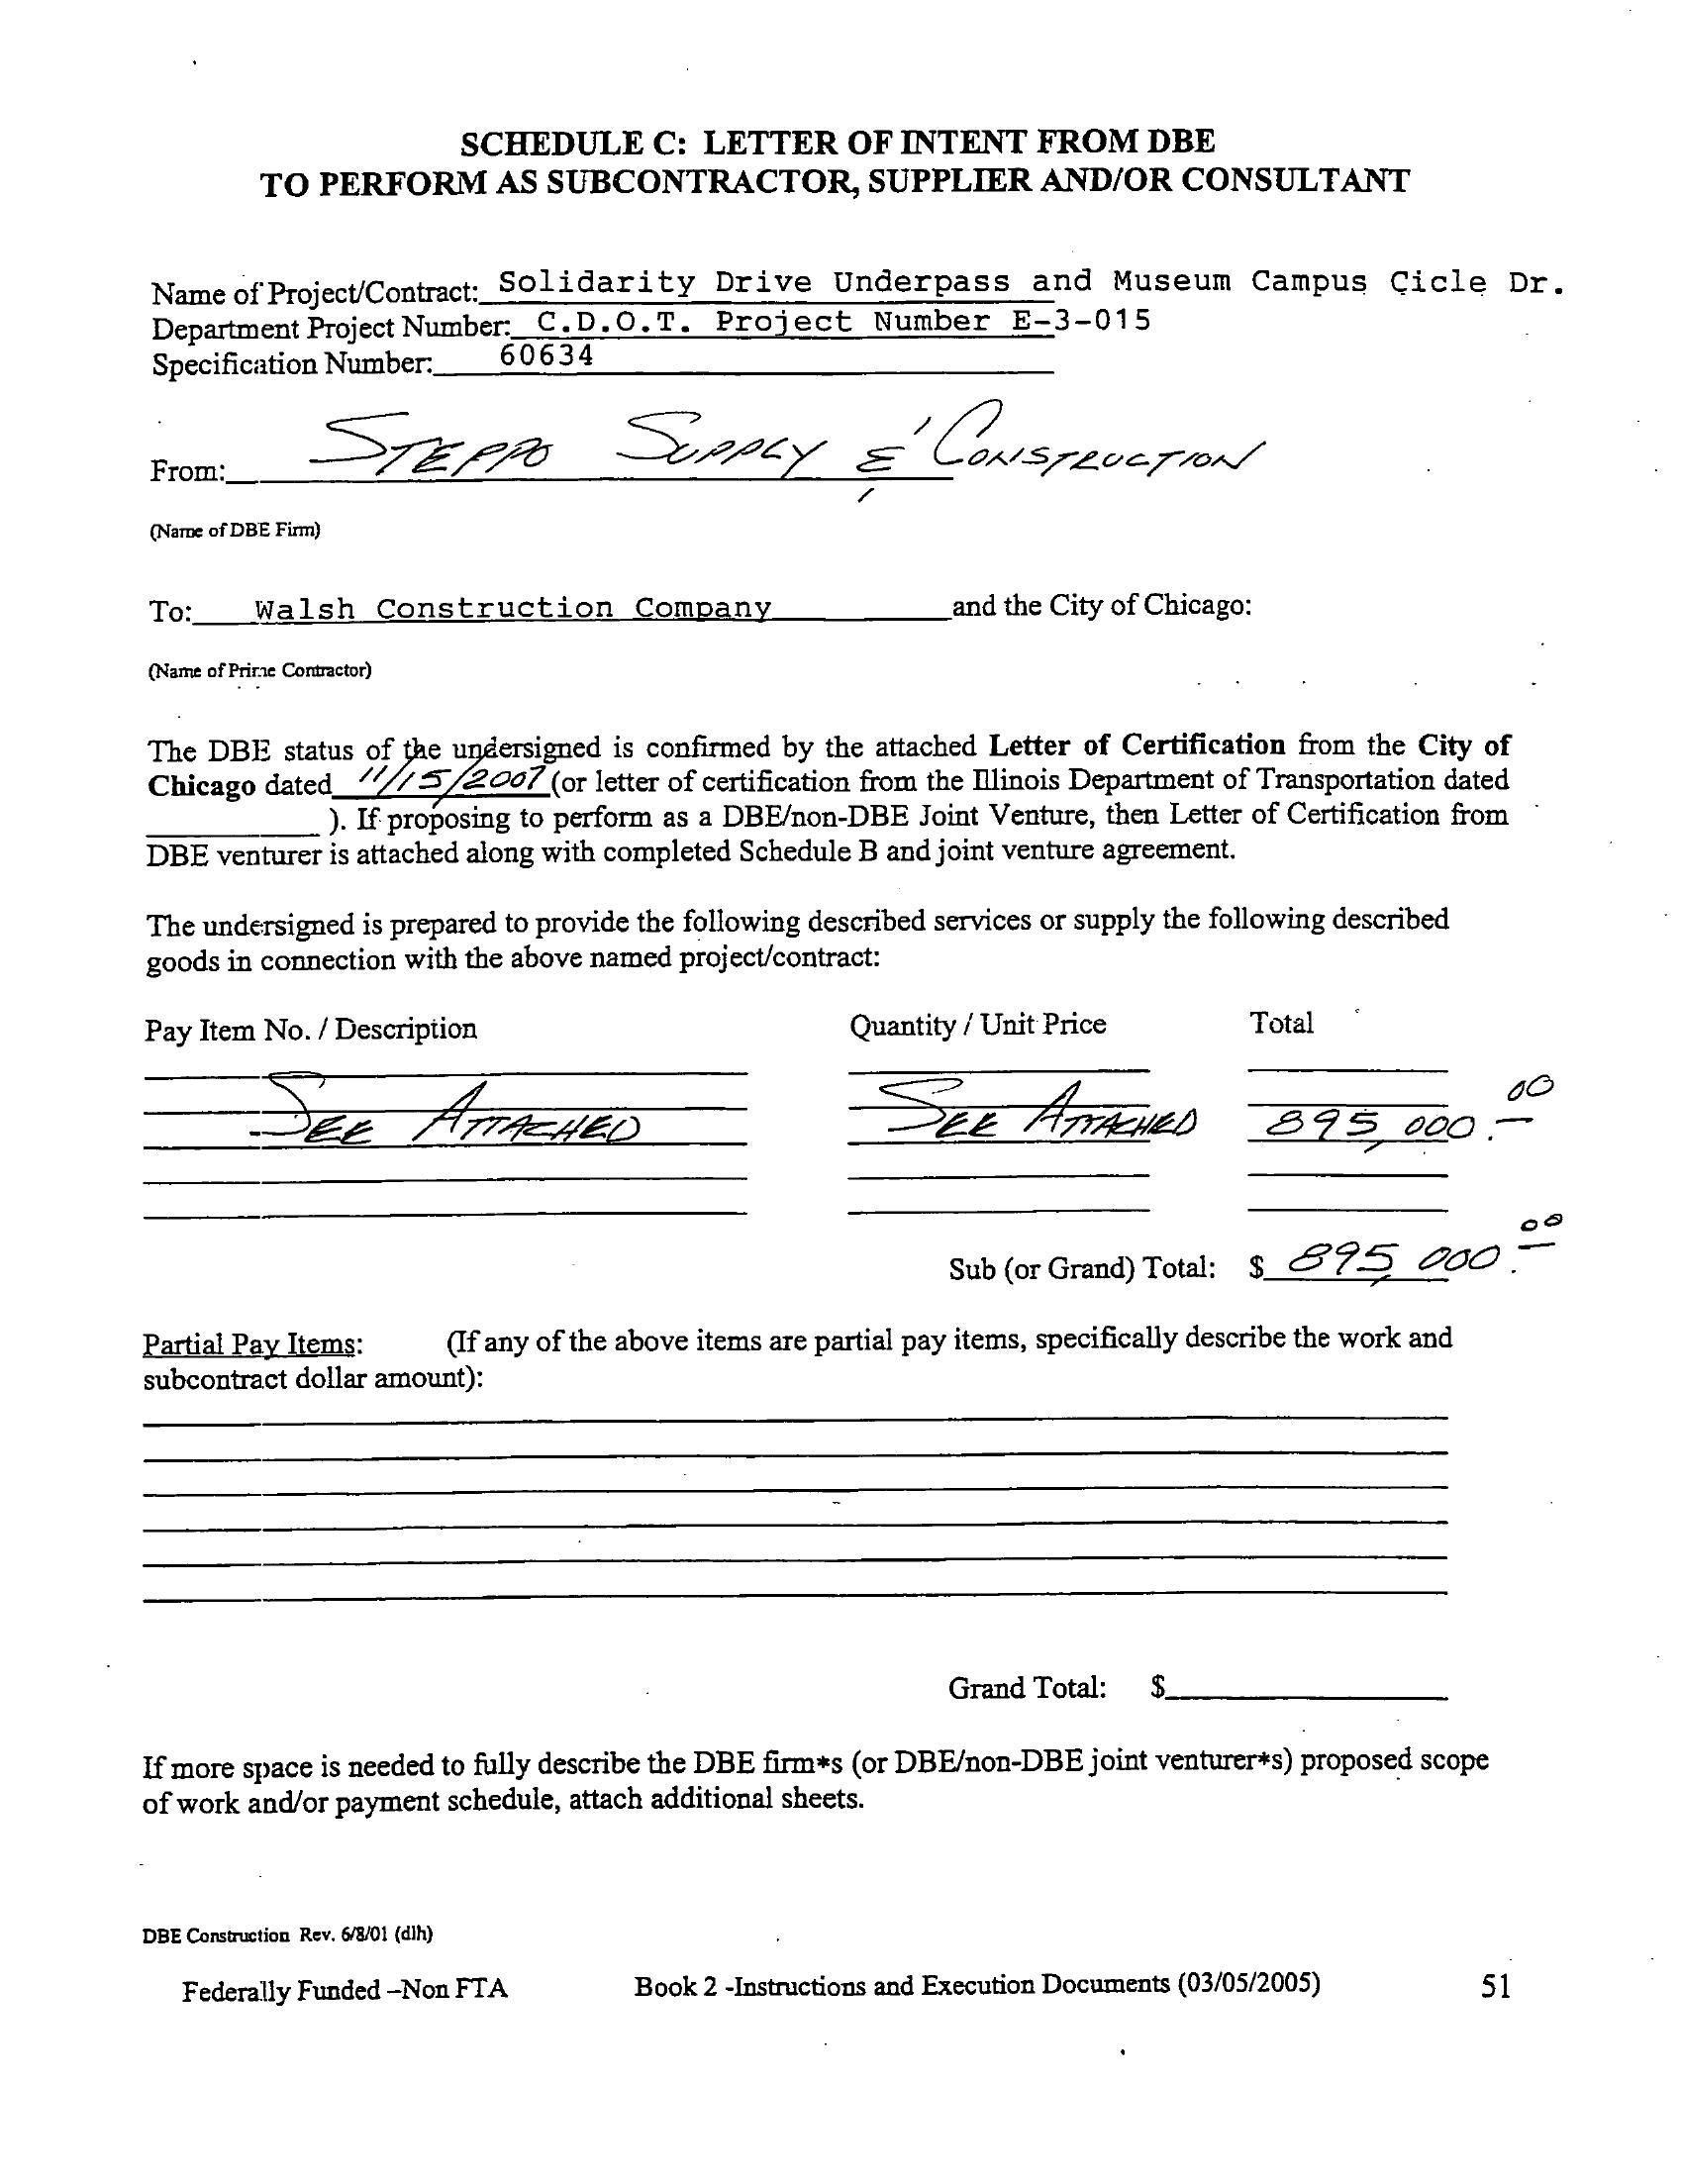 SCHEDULE C: LETTER OF INTENT FROM DBE
TO PERFORM AS SUBCONTRACTOR, SUPPLIER AND/OR CONSULTANT
Name of Project/Contract: Solidarity Drive Underpass and Museum Campus Cicle Dr.
Department Project Number: C.D.O.T. Project Number E-3-015
Specification Number: 60634
From: STEPPO SUPPLY & CONSTRUCTION
(Name of DBE Firm)
To: Walsh Construction Company and the City of Chicago:
(Name of Prime Contractor)
The DBE status of the undersigned is confirmed by the attached Letter of Certification from the City of
Chicago dated 11/15/2007 (or letter of certification from the Illinois Department of Transportation dated
). If proposing to perform as a DBE/non-DBE Joint Venture, then Letter of Certification from
DBE venturer is attached along with completed Schedule B and joint venture agreement.
The undersigned is prepared to provide the following described services or supply the following described
goods in connection with the above named project/contract:
Pay Item No. / Description Quantity / Unit Price Total
SEE ATTACHED SEE ATTACHED 895,000.00
Sub (or Grand) Total: $ 895,000.00
Partial Pay Items: (If any of the above items are partial pay items, specifically describe the work and
subcontract dollar amount):
Grand Total: $
If more space is needed to fully describe the DBE firm*s (or DBE/non-DBE joint venturer*s) proposed scope
of work and/or payment schedule, attach additional sheets.
DBE Construction Rev. 6/8/01 (dlh)
Federally Funded –Non FTA Book 2 -Instructions and Execution Documents (03/05/2005) 51